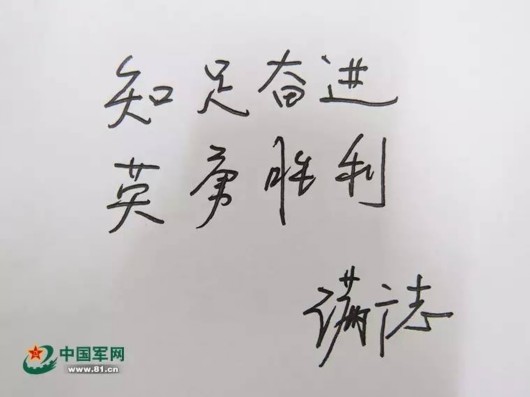 知足奋进
英勇胜利
中国军网
www.81.cn